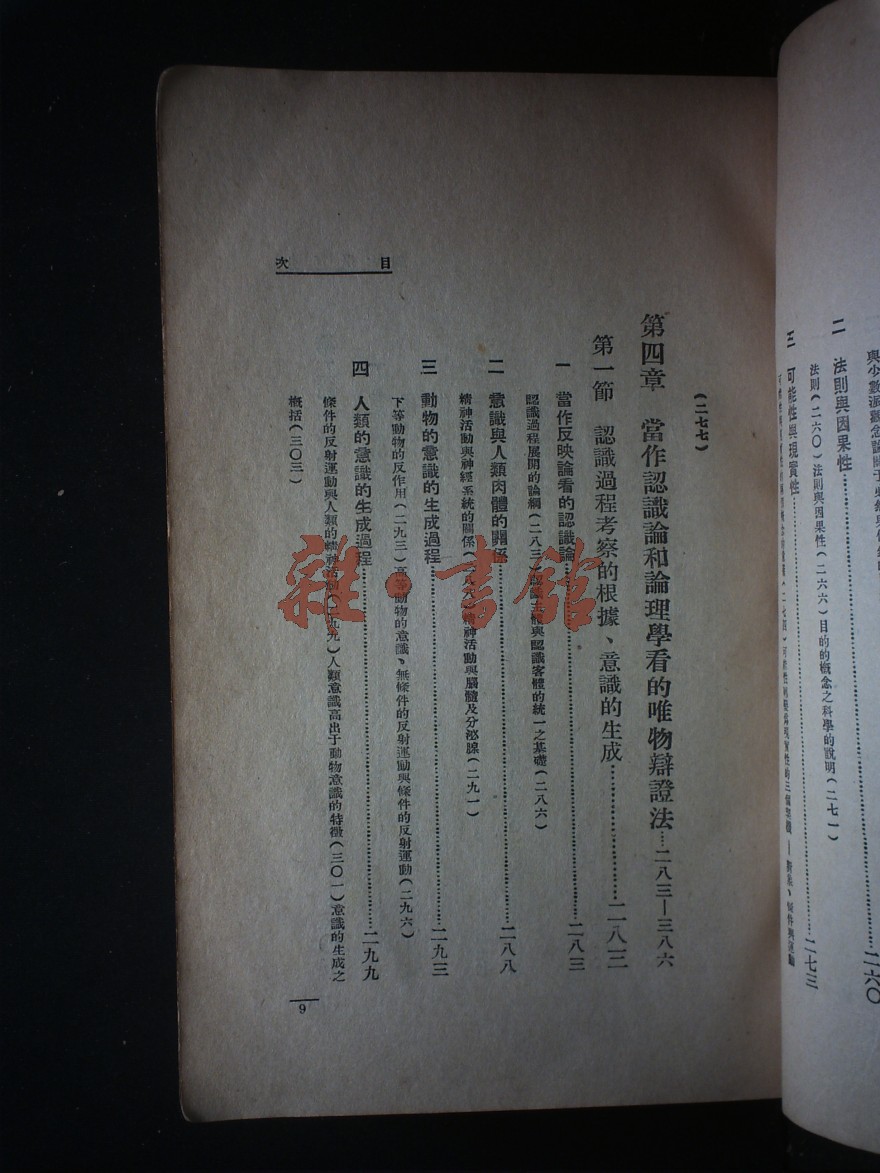 與少數派觀念論關于必然與偶然
二 法則與因果性……二六〇
法則（二六〇）法則與因果性（二六六）目的的概念之科學的說明（二七一）
三 可能性與現實性……二七三
（二七四）
條件與運動
（二七七）
第四章 當作認識論和論理學看的唯物辯證法…二八三—三八六
第一節 認識過程考察的根據、意識的生成……二八三
一 當作反映論看的認識論……二八三
認識過程展開的論綱（二八三）認識主體與認識客體的統一之基礎（二八六）
二 意識與人類肉體的關係……二八八
精神活動與神經系統的關係（二八八）精神活動與腦髓及分泌腺（二九一）
三 動物的意識的生成過程……二九三
下等動物的反作用（二九三）高等動物的意識、無條件的反射運動與條件的反射運動（二九六）
四 人類的意識的生成過程……二九九
條件的反射運動與人類的精神活動（二九九）人類意識高出于動物意識的特徵（三〇一）意識的生成之
概括（三〇三）
目次
9
雜·書館